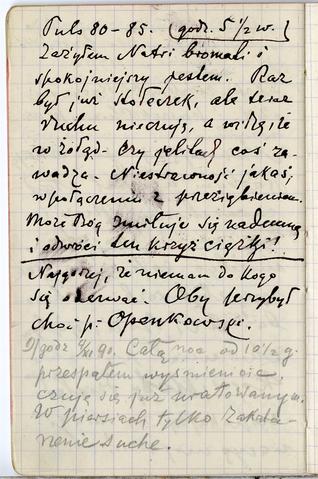 Puls 80–85. (godz. 5 1/2 w.)
Zażyłem Natri bromati i
spokojniejszy jestem. Raz
był już stoleczek, ale teraz
ruchu nie czuję, a widzę, że
w żołąd- czy jelitach coś za-
wadza. Niestrawność jakaś,
w połączeniu z przeziębieniem.
Może Bóg zmiłuje się nademną
i odwróci ten krzyż ciężki!
Najgorzej, że niemam do kogo
się oderwać. Oby przybył
choć p. Openkowski.
9) godz 9/XI 90. Całą noc od 10 1/2 g.
przespałem wyśmienicie,
czuję się już uratowanym.
W piersiach tylko zakata-
rzenie suche.